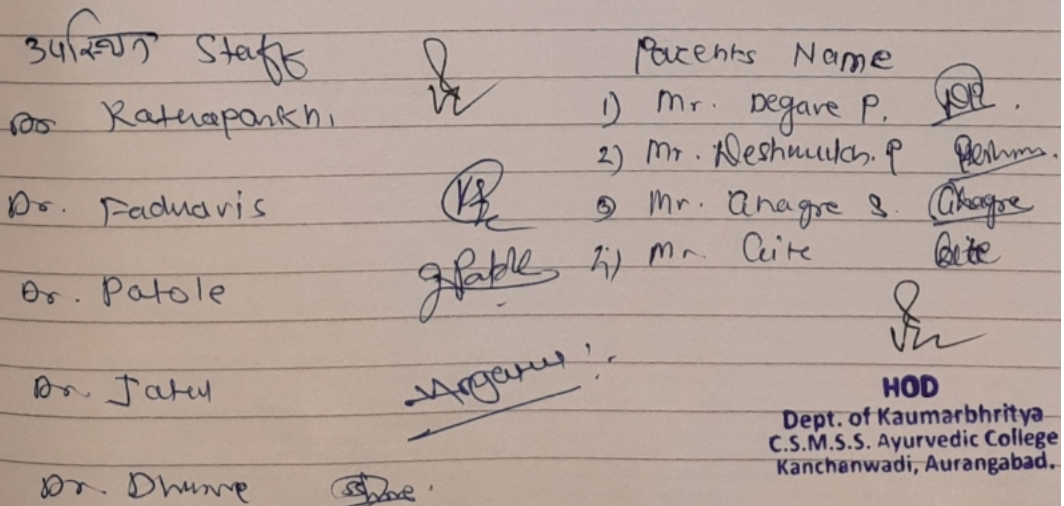 उपस्थित Staff
Dr Rathaparkhi
Dr. Fadnavis
Dr. Patole
gPatole
Dr. Jatul
Dr. Dhurve
Parents Name
1) Mr. Degave P.
2) Mr. Deshmukh. P
3) Mr. Ghagre S. Ghagre
4) Mr. Gite Gite
HOD
Dept. of Kaumarbhritya
C.S.M.S.S. Ayurvedic College
Kanchanwadi, Aurangabad.